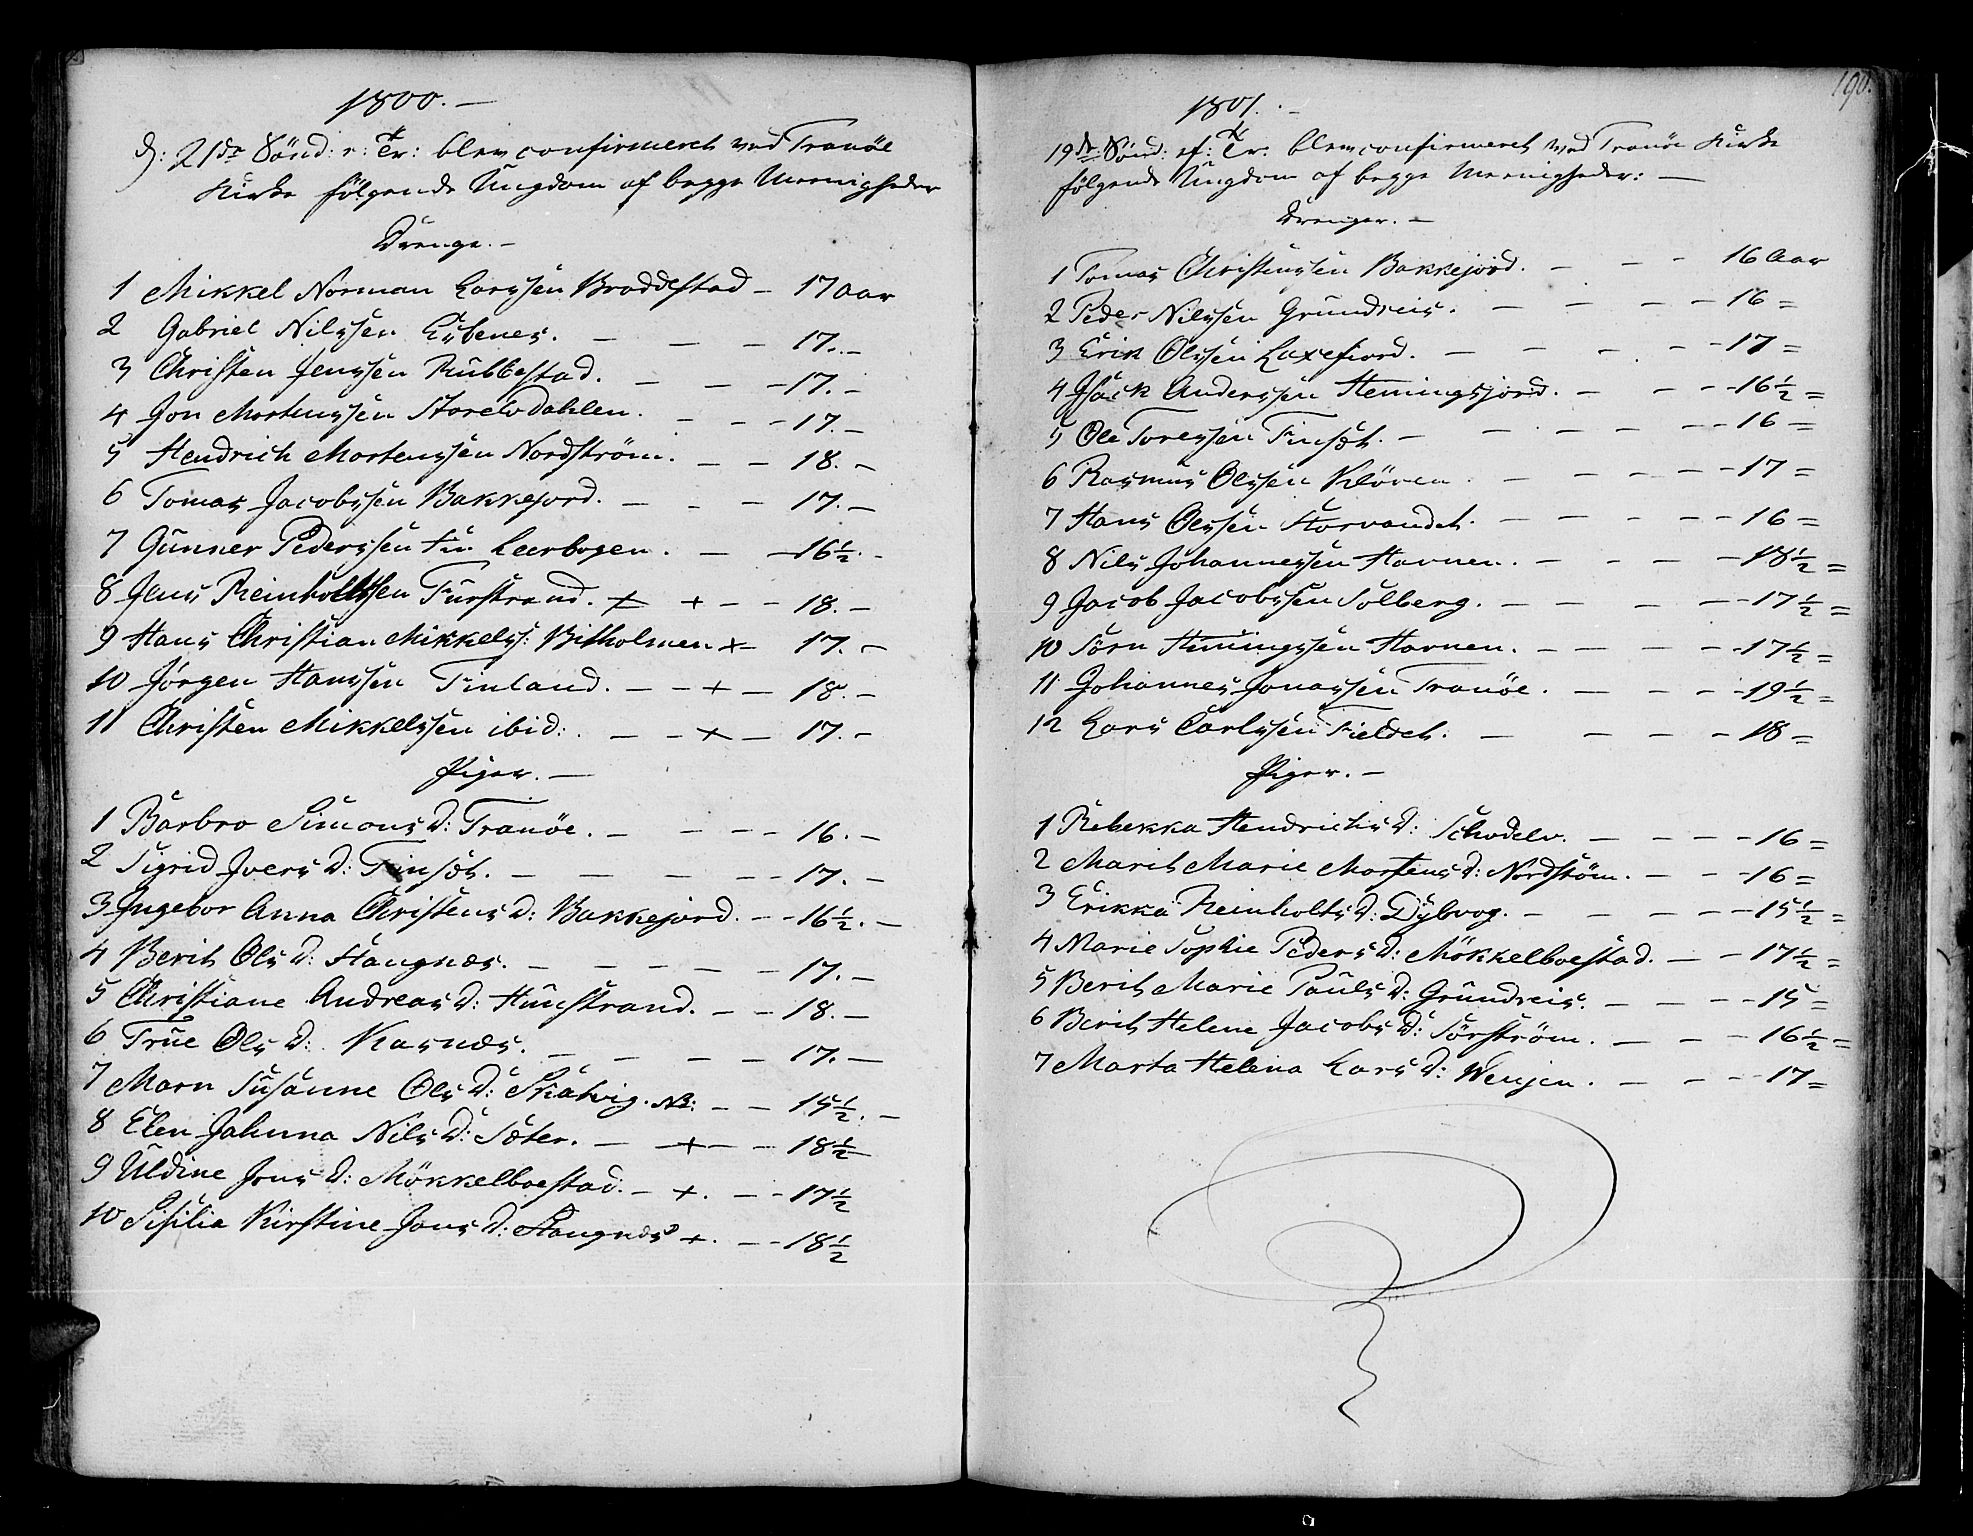 1800. —
d: 21de Sönd: e: Tr: blev confirmeret ved Tranöe
Kirke følgende Ungdom af begge Meenigheder
Drenge. —
1 Mikkel Norman Larssen Braddestad — 17 Aar
2 Gabriel Nilssen Esbenes. — — — 17. —
3 Christen Jenssen Rubbestad. — — — 17. —
4 Jon Mortenssen StoreloDahlen. — — — 17. —
5 Hendrich Mortenssen Nordström. — — 18. —
6 Tomas Jacobssen Bakkejord. — — — 17. —
7 Gunner Pederssen Leerbogen. — — 16½. —
8 Jens Reinholtssen Furstrand. + + — — 18. —
9 Hans Christian Mikkelss: Bitholmen + — 17. —
10 Jörgen Hanssen Finland. — — + — 18. —
11 Christen Mikkelssen ibid: — — + — 17. —
Piger. —
1 Barbro Simons D: Tranöe. — — — — 16. —
2 Sigrid Joers D: Finsæt. — — — — — 17. —
3 Ingebor Anna Christens D: Bakkejord. — — 16½. —
4 Berit Ols D: Hangnæs. — — — — — 17. —
5 Christiane Andreas D: Hunstrand. — — 18. —
6 True Ols D: Kasnæs. — — — — 17. —
7 Marn Susanne Ols D: Skatvig. NB: — — 15½. —
8 Elen Johnna Nils D: Sæter. — + — — 18½
9 Uldine Jons D: Mökkelboestad. — +. — — 17½
10 Sisilia Kirstine Jons D: Hangnæs +. — — 18½
190.
1801. —
19de Sönd: ef: Tr: blev confirmeret ved Tranöe Kirke
følgende Ungdom af begge Meenigheder: —
Drenger. —
1 Tomas Christenssen Bakkejord. — — — 16 Aar
2 Peder Nilssen Grundreis. — — — — 16 =
3 Erik Olssen Laxefiord. — — — — — 17 =
4 Isack Anderssen Hemingsjord. — — — 16½ =
5 Ole Toressen Finsæt. — — — — — 16 =
6 Rasmus Olssen Klöven — — — — 17 =
7 Hans Olssen Storvandet. — — — — — 16 =
8 Nils Johannessen Havnen. — — — — 18½ =
9 Jacob Jacobssen Solberg. — — — — — 17½ =
10 Sörn Hemingssen Havnen. — — — — 17½ =
11 Johannes Jonassen Tranöe. — — — — 19½ =
12 Lars Carlssen Fieldet. — — — — 18 =
Piger. —
1 Rebekka Hendrichs D: Schodelv. — — — — 16 =
2 Marit Marie Mortens D: Nordstöm. — — — 16 =
3 Erikka Reinholts D: Dybvog. — — — — 15½ =
4 Marie Sophie Peders D: Mökkelboestad. — — 17½ =
5 Berit Marie Pauls D: Grundreis. — — — — 15 =
6 Berit Helene Jacobs D: Sörström. — — — 16½ =
7 Marta Helena Lars D: Wenjen. — — — 17 =